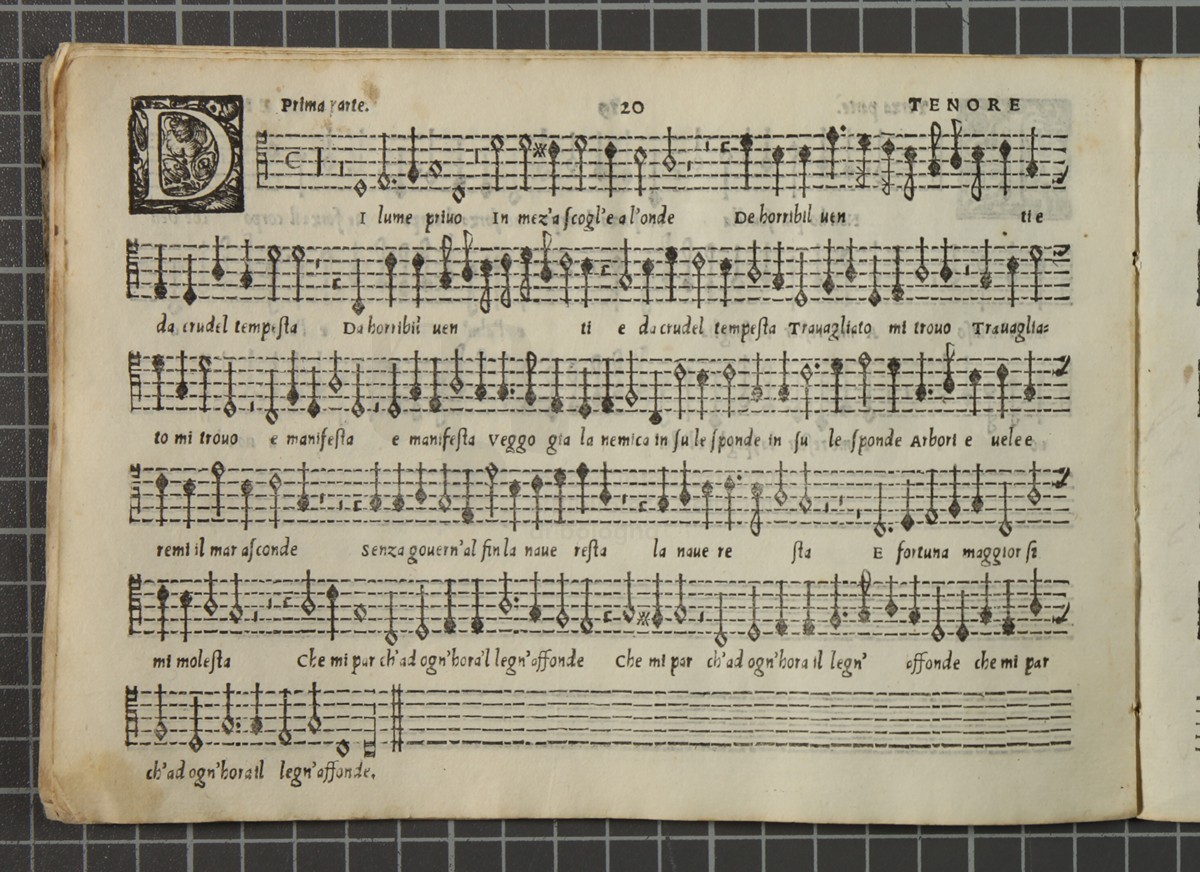 Prima parte. 20 TENORE
DI lume priuo In mez'a scogl'e a l'onde De horribil uen ti e
da crudel tempesta Da horribil uen ti e da crudel tempesta Trauagliato mi trouo Trauaglia=
to mi trouo e manifesta e manifesta Veggo gia la nemica in su le sponde in su le sponde Arbori e uele e
remi il mar asconde Senza gouern'al fin la naue resta la naue re sta E fortuna maggior si
mi molesta Che mi par ch'ad ogn'hora'l legn'affonde Che mi par ch'ad ogn'hora il legn' affonde che mi par
ch'ad ogn'hora il legn'affonde.